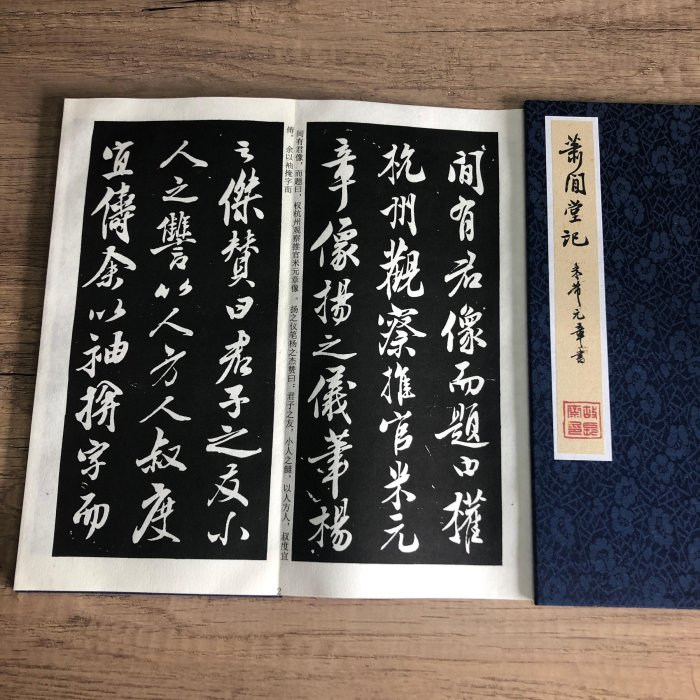 蕭閒堂記
米芾元章書
間有君像而題曰權
杭州觀察推官米元
章像揚之儀筆楊
之傑贊曰君子之友小
人之讐以人方人叔度
宜儔余以袖揜字而
间有君像，而题曰，权杭州观察推官米元章像。扬之仪笔杨之杰赞曰：君子之友，小人之雠，以人方人，叔度宜
俦。余以袖掩字而
2